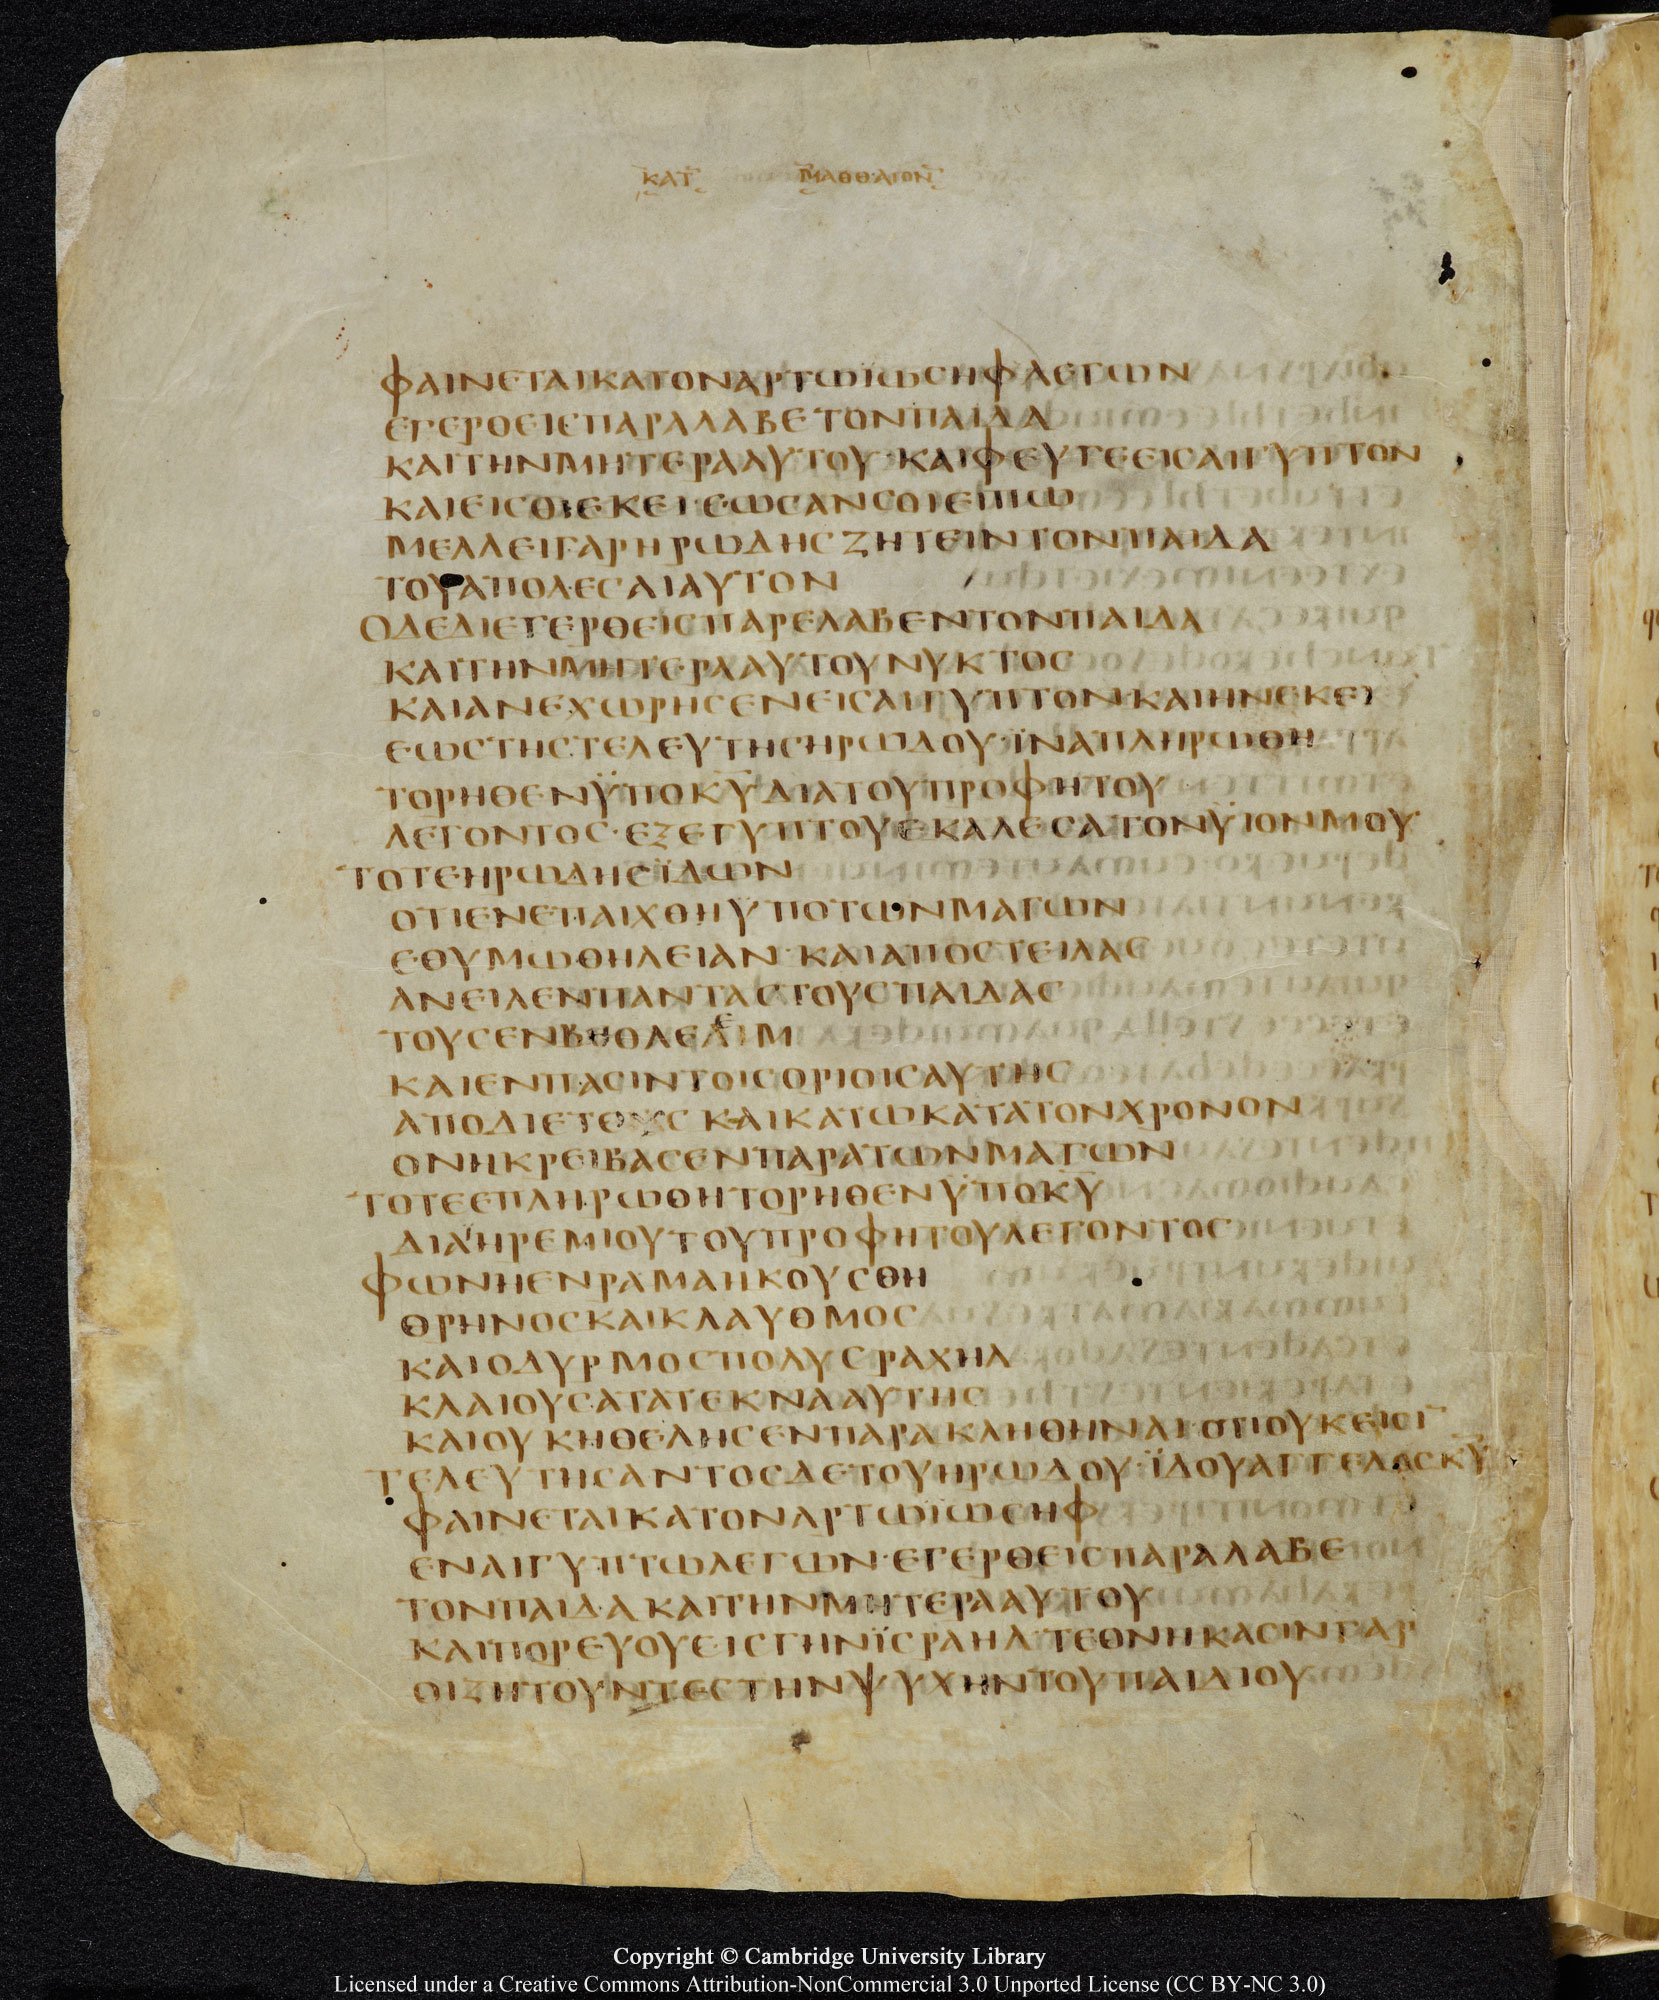 ΚΑΤ ΜΑΘΘΑΙΟΝ
ΦΑΙΝΕΤΑΙΚΑΤΟΝΑΡΤΩΪΩΣΗΦΛΕΓΩΝ
ΕΓΕΡΘΕΙΣΠΑΡΑΛΑΒΕΤΟΝΠΑΙΔΑ
ΚΑΙΤΗΝΜΗΤΕΡΑΑΥΤΟΥ·ΚΑΙΦΕΥΓΕΕΙΣΑΙΓΥΠΤΟΝ
ΚΑΙΕΙΣΘΙΕΚΕΙ·ΕΩΣΑΝΣΟΙΕΙΠΩ
ΜΕΛΛΕΙΓΑΡΗΡΩΔΗΣΖΗΤΕΙΝΤΟΝΠΑΙΔΑ
ΤΟΥΑΠΟΛΕΣΑΙΑΥΤΟΝ
ΟΔΕΔΙΕΓΕΡΘΕΙΣΠΑΡΕΛΑΒΕΝΤΟΝΠΑΙΔΑ
ΚΑΙΤΗΝΜΗΤΕΡΑΑΥΤΟΥΝΥΚΤΟΣ
ΚΑΙΑΝΕΧΩΡΗΣΕΝΕΙΣΑΙΓΥΠΤΟΝ·ΚΑΙΗΝΕΚΕΙ
ΕΩΣΤΗΣΤΕΛΕΥΤΗΣΗΡΩΔΟΥ·ΪΝΑΠΛΗΡΩΘΗ
ΤΟΡΗΘΕΝΫΠΟΚΥ̅ΔΙΑΤΟΥΠΡΟΦΗΤΟΥ
ΛΕΓΟΝΤΟΣ·ΕΞΕΓΥΠΤΟΥΕΚΑΛΕΣΑΤΟΝΥΙΟΝΜΟΥ
ΤΟΤΕΗΡΩΔΗΣΪΔΩΝ
ΟΤΙΕΝΕΠΑΙΧΘΗΥΠΟΤΩΝΜΑΓΩΝ
ΕΘΥΜΩΘΗΛΕΙΑΝ·ΚΑΙΑΠΟΣΤΕΙΛΑΣ
ΑΝΕΙΛΕΝΠΑΝΤΑΣΤΟΥΣΠΑΙΔΑΣ
ΤΟΥΣΕΝΒΗΘΛΕΕΙΜ
ΚΑΙΕΝΠΑΣΙΝΤΟΙΣΟΡΙΟΙΣΑΥΤΗΣ
ΑΠΟΔΙΕΤΟΥΣ ΚΑΙΚΑΤΩΚΑΤΑΤΟΝΧΡΟΝΟΝ
ΟΝΗΚΡΕΙΒΑΣΕΝΠΑΡΑΤΩΝΜΑΓΩΝ
ΤΟΤΕΕΠΛΗΡΩΘΗΤΟΡΗΘΕΝΫΠΟΚΥ̅
ΔΙΑΗΡΕΜΙΟΥΤΟΥΠΡΟΦΗΤΟΥΛΕΓΟΝΤΟΣ
ΦΩΝΗΕΝΡΑΜΑΗΚΟΥΣΘΗ
ΘΡΗΝΟΣΚΑΙΚΛΑΥΘΜΟΣ
ΚΑΙΟΔΥΡΜΟΣΠΟΛΥΣΡΑΧΗΛ
ΚΛΑΙΟΥΣΑΤΑΤΕΚΝΑΑΥΤΗΣ
ΚΑΙΟΥΚΗΘΕΛΗΣΕΝΠΑΡΑΚΛΗΘΗΝΑΙΟΤΙΟΥΚΕΙΣΙ̅
ΤΕΛΕΥΤΗΣΑΝΤΟΣΔΕΤΟΥΗΡΩΔΟΥ·ΪΔΟΥΑΓΓΕΛΟΣΚΥ̅
ΦΑΙΝΕΤΑΙΚΑΤΟΝΑΡΤΩΪΩΣΗΦ
ΕΝΑΙΓΥΠΤΩΛΕΓΩΝ·ΕΓΕΡΘΕΙΣΠΑΡΑΛΑΒΕ
ΤΟΝΠΑΙΔΑΚΑΙΤΗΝΜΗΤΕΡΑΑΥΤΟΥ
ΚΑΙΠΟΡΕΥΟΥΕΙΣΓΗΝΪΣΡΑΗΛ·ΤΕΘΝΗΚΑΣΙΝΓΑΡ
ΟΙΖΗΤΟΥΝΤΕΣΤΗΝΨΥΧΗΝΤΟΥΠΑΙΔΙΟΥ
Copyright © Cambridge University Library
Licensed under a Creative Commons Attribution-NonCommercial 3.0 Unported License (CC BY-NC 3.0)